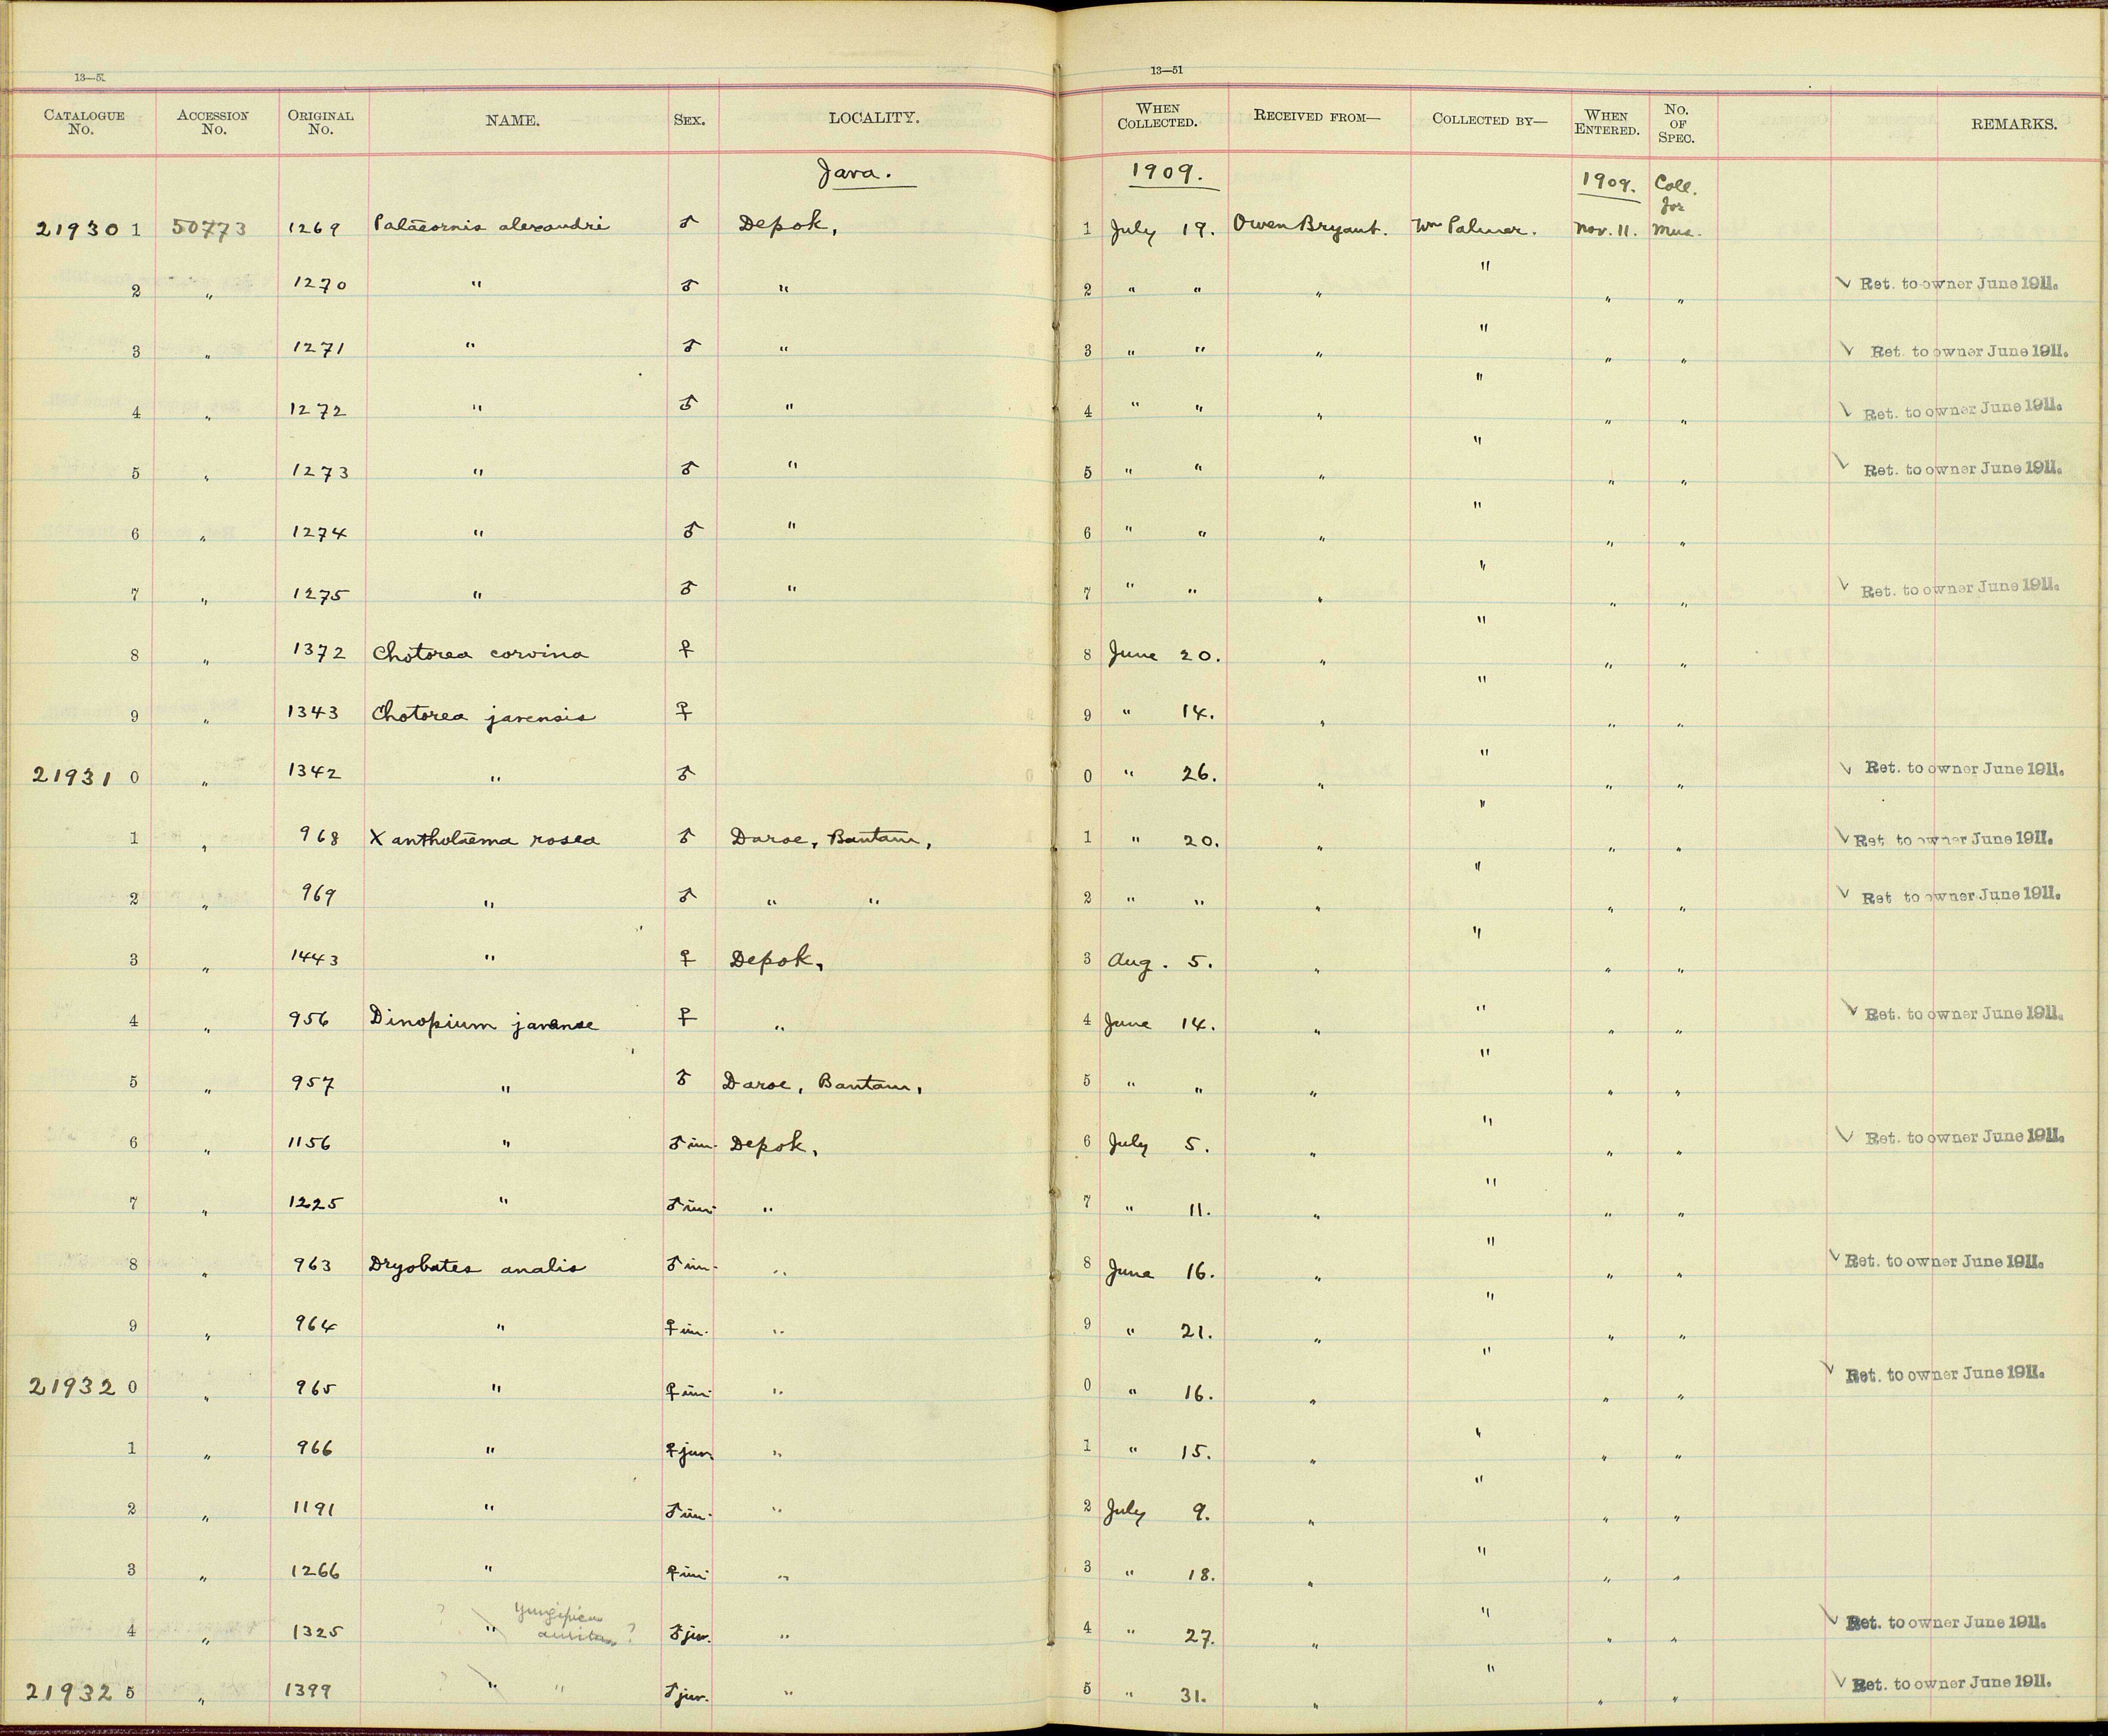 13—51
13—51
CATALOGUE No. ACCESSION No. ORIGINAL No. NAME. SEX. LOCALITY. WHEN COLLECTED. RECEIVED FROM— COLLECTED BY— WHEN ENTERED. No. OF SPEC. REMARKS.
Java. 1909. 1909. Coll. for
21930 1 50773 1269 Palaeornis alexandri ♂ Depok, 1 July 19. Owen Bryant. Wm Palmer. Nov. 11. Mus.
2 " 1270 " ♂ " 2 " " " " " " ✓ Ret. to owner June 1911.
3 " 1271 " ♂ " 3 " " " " " " ✓ Ret. to owner June 1911.
4 " 1272 " ♂ " 4 " " " " " " ✓ Ret. to owner June 1911.
5 " 1273 " ♂ " 5 " " " " " " ✓ Ret. to owner June 1911.
6 " 1274 " ♂ " 6 " " " " " "
7 " 1275 " ♂ " 7 " " " " " " ✓ Ret. to owner June 1911.
8 " 1372 Chotorea corvina ♀ 8 June 20. " " " "
9 " 1343 Chotorea javensis ♀ 9 " 14. " " " "
21931 0 " 1342 " ♂ 0 " 26. " " " " ✓ Ret. to owner June 1911.
1 " 968 Xantholaema rosea ♂ Daroe, Bantam, 1 " 20. " " " " ✓ Ret. to owner June 1911.
2 " 969 " ♂ " " 2 " " " " " " ✓ Ret to owner June 1911.
3 " 1443 " ♀ Depok, 3 Aug. 5. " " " "
4 " 956 Dinopium javanse ♀ " 4 June 14. " " " " ✓ Ret. to owner June 1911.
5 " 957 " ♂ Daroe, Bantam, 5 " " " " " "
6 " 1156 " ♂ im. Depok, 6 July 5. " " " " ✓ Ret. to owner June 1911.
7 " 1225 " ♂ im. " 7 " 11. " " " "
8 " 963 Dryobates analis ♂ im. " 8 June 16. " " " " ✓ Ret. to owner June 1911.
9 " 964 " ♀ im. " 9 " 21. " " " "
21932 0 " 965 " ♀ im. " 0 " 16. " " " " ✓ Ret. to owner June 1911.
1 " 966 " ♀ juv. " 1 " 15. " " " "
2 " 1191 " ♂ im. " 2 July 9. " " " "
3 " 1266 " ♀ im. " 3 " 18. " " " "
? Yungipicus
4 " 1325 " auritus ? ♂ juv. " 4 " 27. " " " " ✓ Ret. to owner June 1911.
21932 5 " 1399 ? " " ♂ juv. " 5 " 31. " " " " ✓ Ret. to owner June 1911.